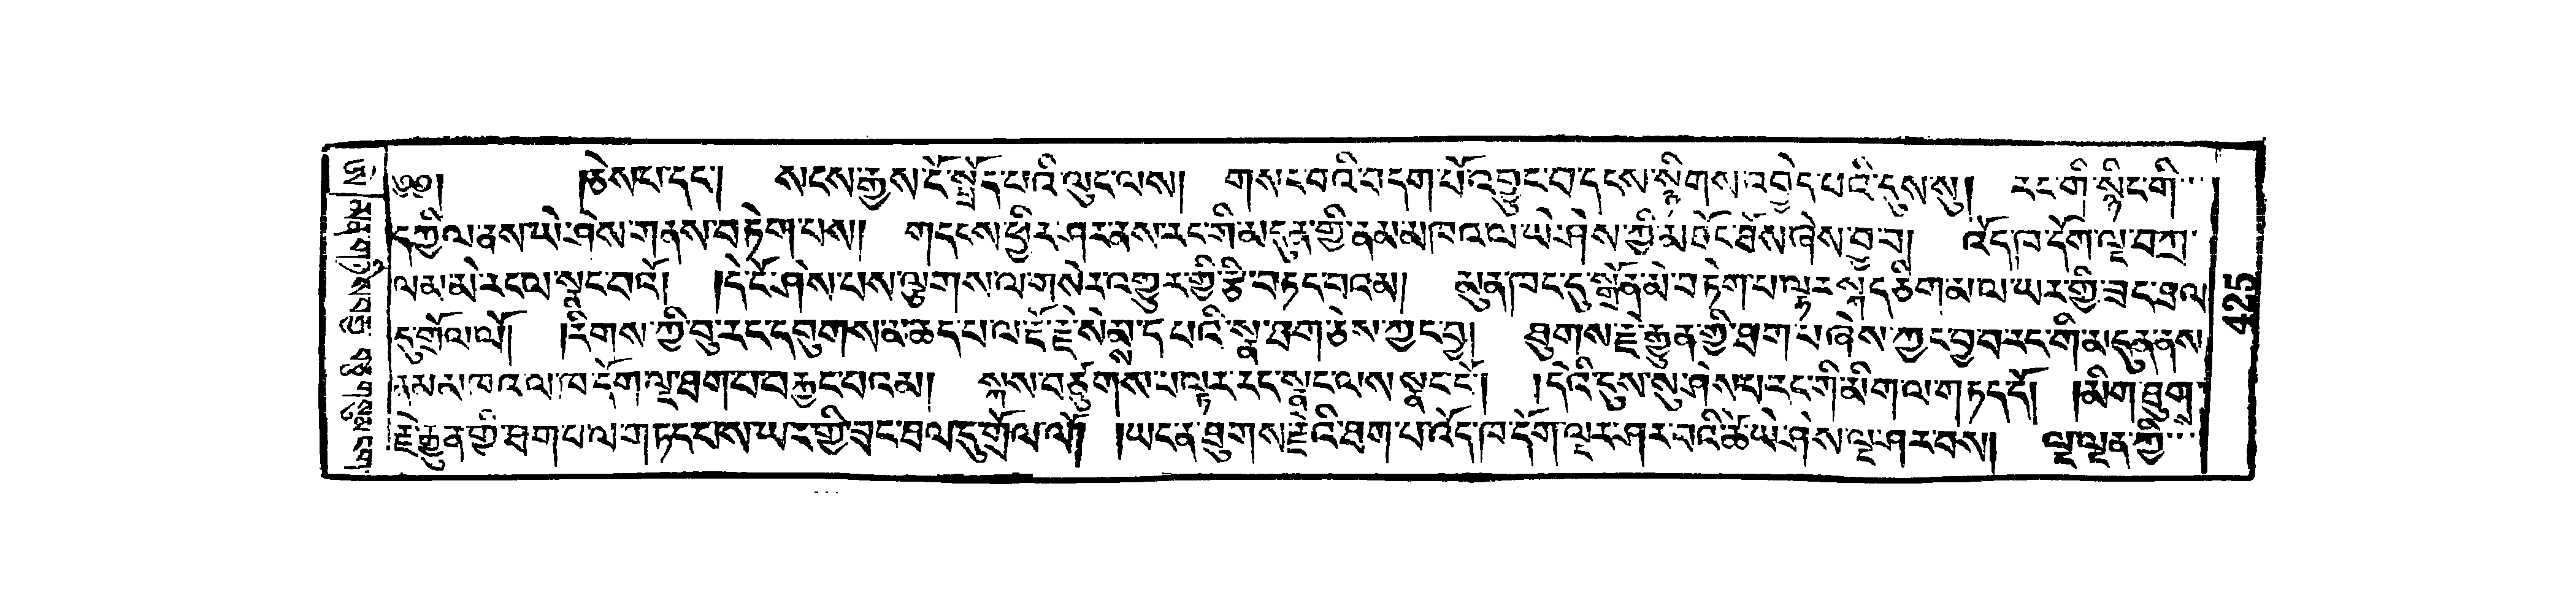 ༄༅། །ཅེས་པ་དང་། སངས་རྒྱས་ངོ་སྤྲོད་པའི་ལུང་ལས། གསང་བའི་བདག་པོ་འབྱུང་བ་དངས་སྙིགས་འབྱེད་པའི་དུས་སུ། རང་གི་སྙིང་གི་
དཀྱིལ་ནས་ཡེ་ཤེས་གནས་བཏེག་པས། གདངས་ཕྱིར་ཤར་ནས་རང་གི་མདུན་གྱི་ནམ་མཁའ་ལ་ཡེ་ཤེས་ཀྱི་མཐོང་ཐོས་ཞེས་བྱ་བ། འོད་ཁ་དོག་ལྔ་བཀྲ་
ལམ་མེ་རང་ལ་སྣང་བའོ། །དེ་ངོ་ཤེས་པས་ལྕགས་ལ་གསེར་འགྱུར་གྱི་རྩི་བཏང་བའམ། མུན་ཁང་དུ་སྒྲོན་མེ་བཏེག་པ་ལྟར་སྐད་ཅིག་མ་ལ་ཡར་གྱི་ཟང་ཐལ་
དུ་གྲོལ་ལོ། །རིགས་ཀྱི་བུ་རང་དབུགས་ནི་ཆད་པ་ལ་རྡོ་རྗེ་སེམས་དཔའི་སྣ་ཐག་ཅེས་ཀྱང་བྱ། ཐུགས་རྗེ་རྒྱུན་གྱི་ཐག་པ་ཞེས་ཀྱང་བྱ་བ་རང་གི་མདུན་ནས་
ནམ་མཁའ་ལ་ཁ་དོག་ལྔ་ཐག་པ་བརྐྱང་བའམ། སྐས་བཙུགས་པ་ལྟར་རང་སྣང་ལས་སྣང་ངོ་། །དེའི་དུས་སུ་ཤེས་པ་རང་གི་མིག་ལ་གཏད་དོ། །མིག་ཐུགས་
རྗེ་རྒྱུན་གྱི་ཐག་པ་ལ་གཏད་པས་ཡར་གྱི་ཟང་ཐལ་དུ་གྲོལ་ལོ། །ཡང་ན་ཐུགས་རྗེའི་ཐག་པ་འོད་ཁ་དོག་ལྔར་ཤར་བའི་ཚེ་ཡེ་ཤེས་ལྔ་ཤར་བས། ལྔ་ལྡན་གྱི་